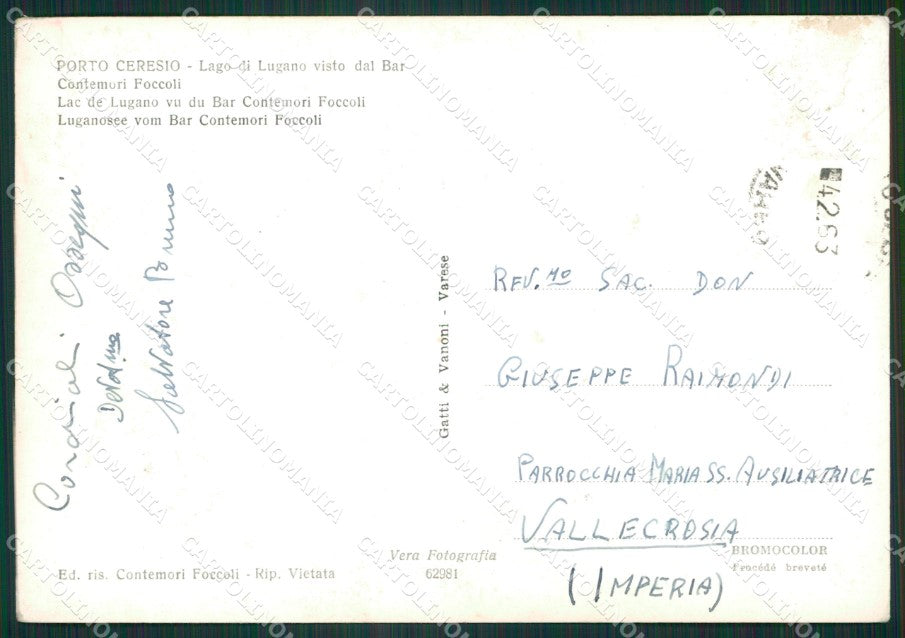 PORTO CERESIO - Lago di Lugano visto dal Bar
Contemori Foccoli
Lac de Lugano vu du Bar Contemori Foccoli
Luganosee vom Bar Contemori Foccoli
Cordiali Ossequi
Dev.mo
Salvatore Bruno
Gatti & Vanoni - Varese
42.63
REV.MO SAC. DON
GIUSEPPE RAIMONDI
PARROCCHIA MARIA SS. AUSILIATRICE
VALLECROSIA
(IMPERIA)
Vera Fotografia
62981
BROMOCOLOR
Procédé breveté
Ed. ris. Contemori Foccoli - Rip. Vietata
CARTOLINOMANIA